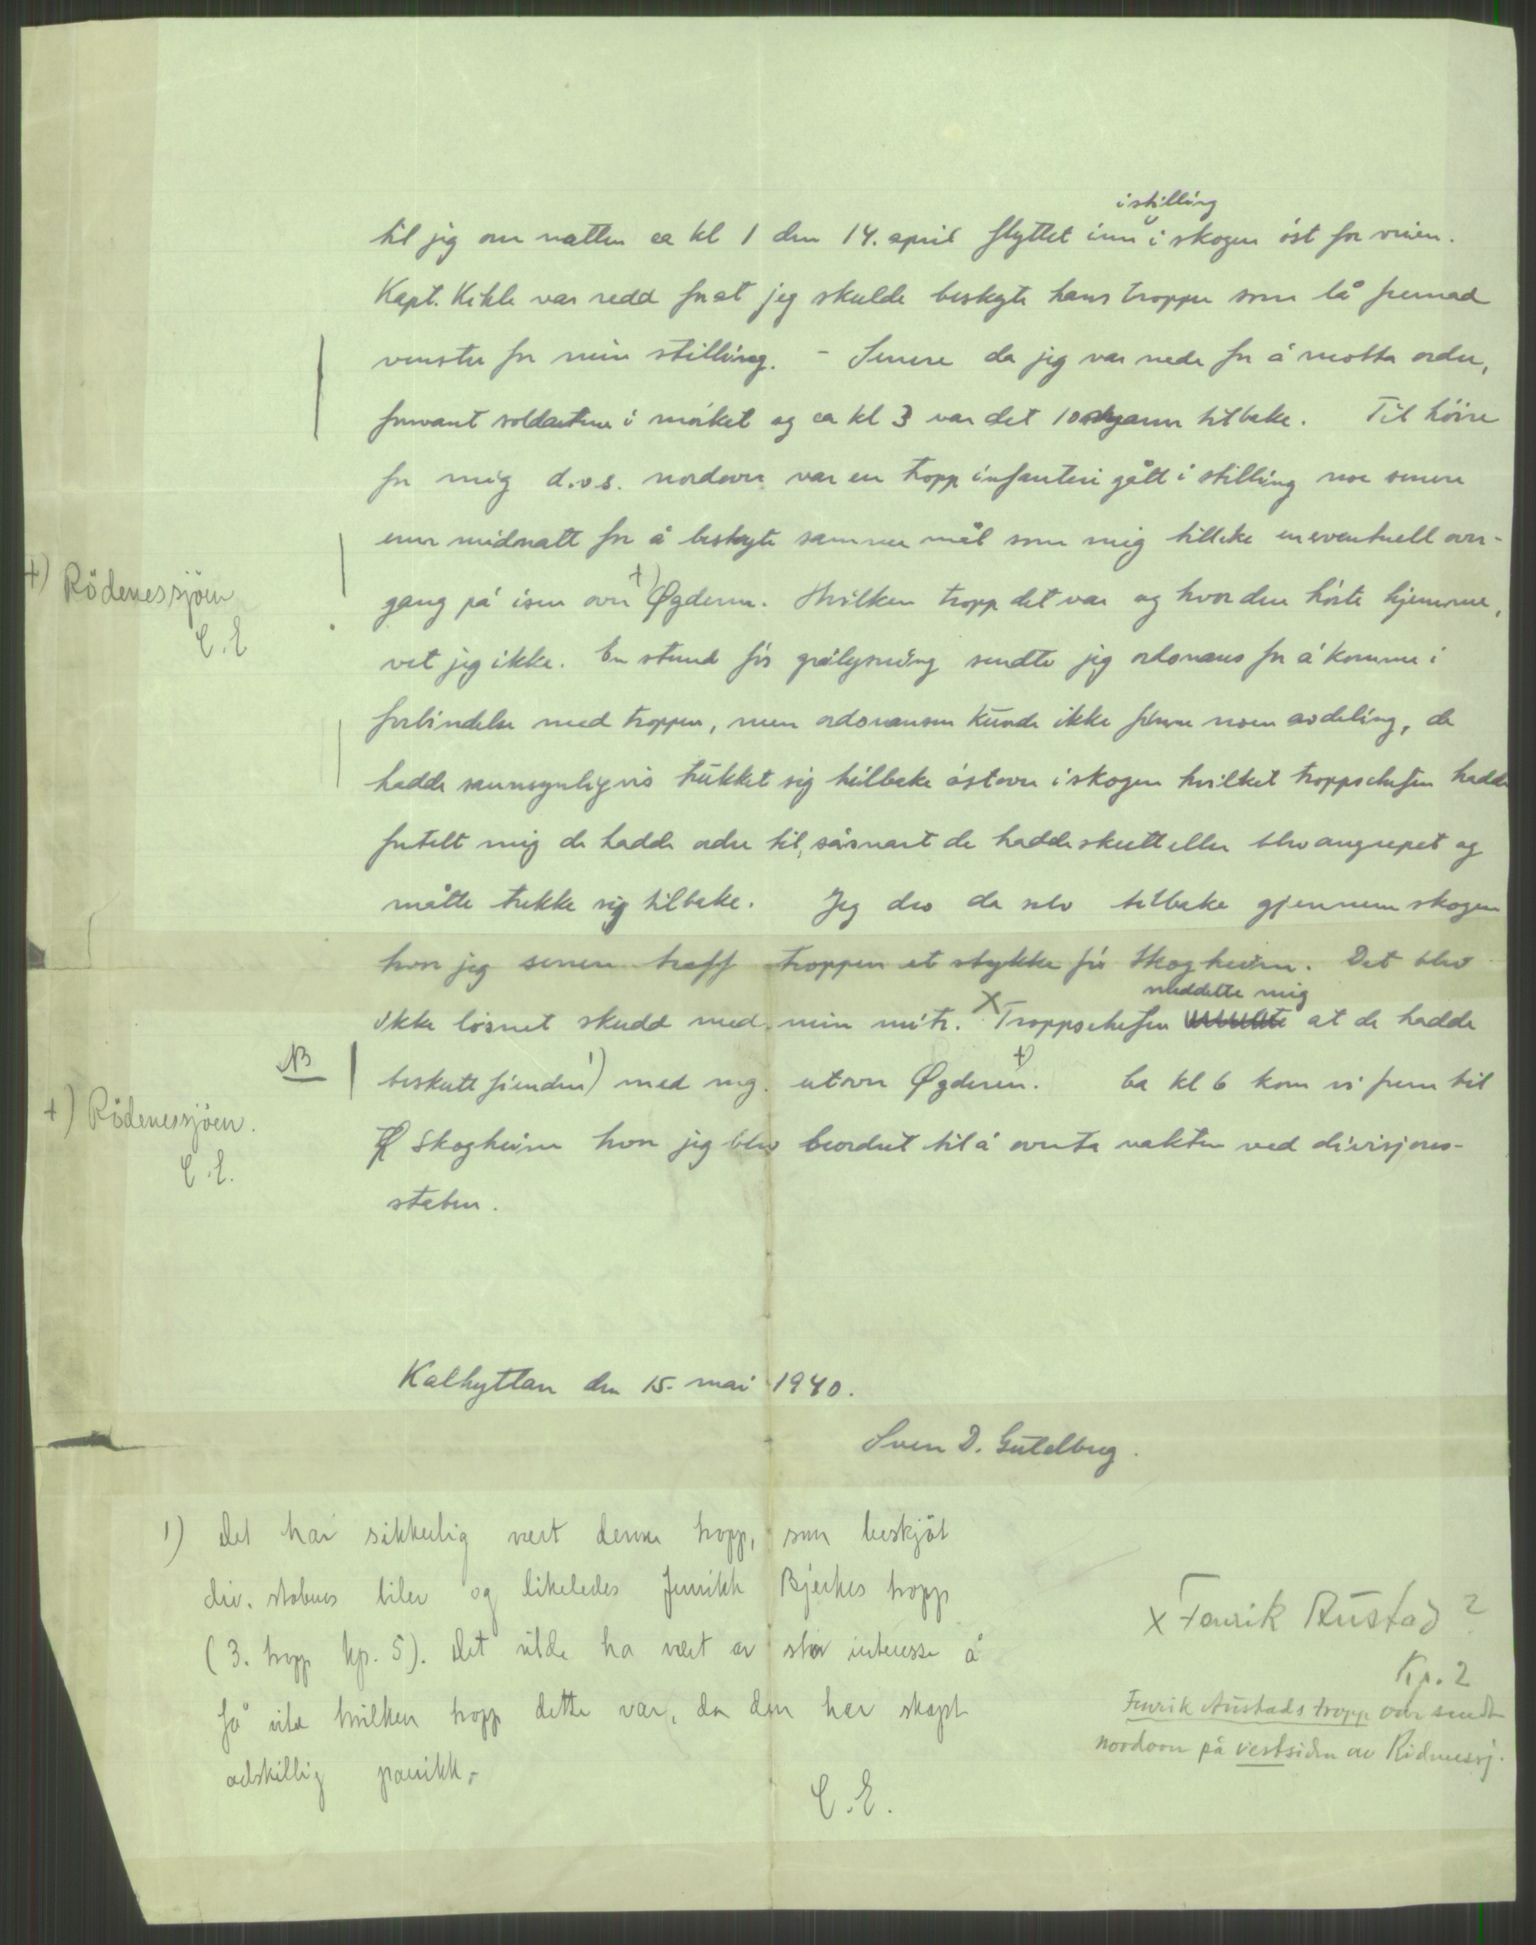 i stilling
til jeg om natten ca kl 1 den 14. april flyttet inn i skogen öst for veien.
Kapt. Kihle var redd for at jeg skulde beskyte hans tropper som lå fremad
venstre for min stilling. - Senere da jeg var nede for å motta ordre,
forsvant soldatene i mörket og ca kl 3 var det 10 mann tilbake. Til höire
for mig d.v.s. nordover var en tropp infanteri gått i stilling noe senere
enn midnatt for å beskyte samme mål som mig tillike en eventuell over-
gang på isen over +) Øgderen. Hvilken tropp det var og hvor den hörte hjemme,
vet jeg ikke. En stund för grålysning sendte jeg ordonans for å komme i
forbindelse med troppen, men ordonansen kunde ikke finne noen avdeling, de
hadde sannsynligvis trukket sig tilbake östover i skogen hvilket troppschefen hadde
fortalt mig de hadde ordre til, såsnart de hadde skutt eller blev angrepet og
måtte trekke sig tilbake. Jeg dro da selv tilbake gjennem skogen
hvor jeg senere traff troppen et stykke för Skogheim. Det blev
meddelte mig
ikke lösnet skudd med min mitr. X Troppschefen at de hadde
beskutt fienden 1) med mg. utover Øgderen. +) Ca kl 6 kom vi frem til
Skogheim hvor jeg blev beordret til å overta vakten ved divisjons-
staben.
+) Rödenessjöen
C.E
NB
+) Rödenessjöen.
C.E.
Kalhyttan den 15. mai 1940.
Sven D. Guldberg.
1) Det har sikkerlig vært denne tropp, som beskjöt
div. stabens biler og likeledes fenrikk Bjerkes tropp
(3. tropp kp. 5). Det vilde ha vært av stor interesse å
få vite hvilken tropp dette var, da den har skapt
adskillig panikk.
C.E.
X Fenrik Austad?
Kp. 2
Fenrik Austads tropp var sendt
nordover på vestsiden av Rödnessj.